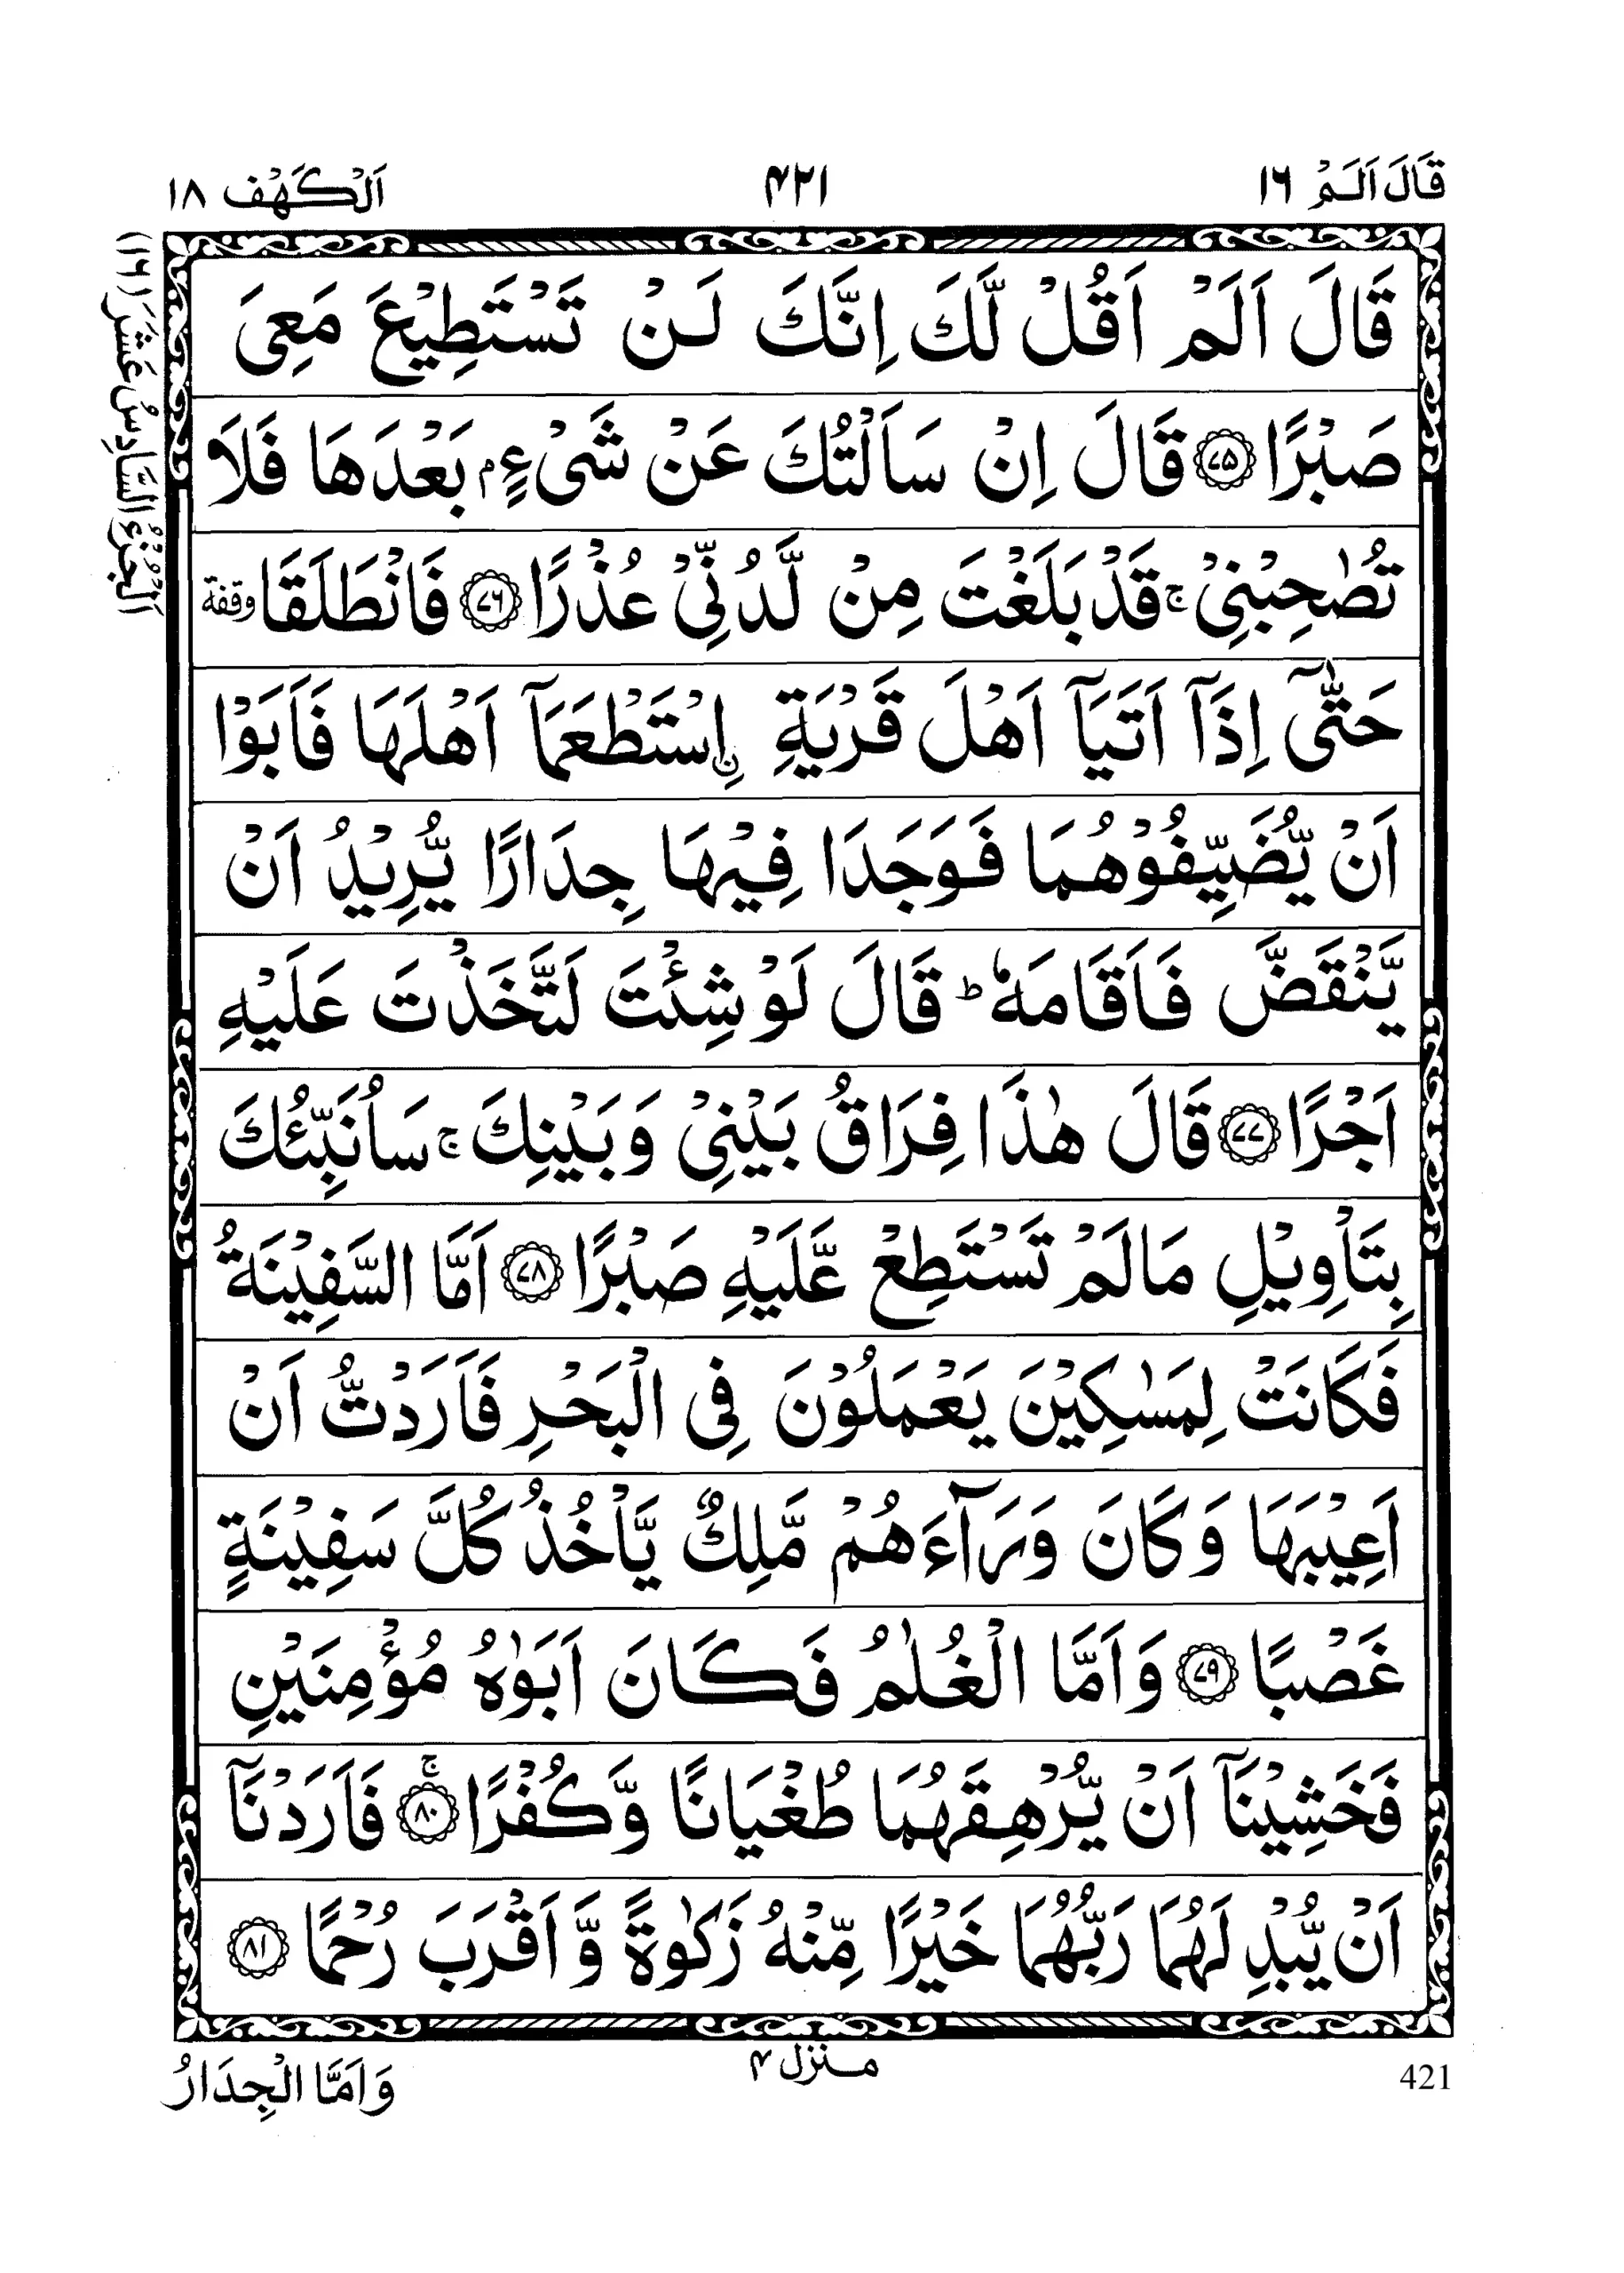 قَالَ اَلَمْ ١٦
٤٢١
اَلْكَهْف ١٨
اَلْجُزْءُ السَّادِسُ عَشَرَ (١٦)
قَالَ اَلَمْ اَقُلْ لَّكَ اِنَّكَ لَنْ تَسْتَطِيْعَ مَعِىَ
صَبْرًا ﴿٧٥﴾ قَالَ اِنْ سَاَلْتُكَ عَنْ شَىْءٍۭ بَعْدَهَا فَلَا
تُصٰحِبْنِىْ ۚ قَدْ بَلَغْتَ مِنْ لَّدُنِّىْ عُذْرًا ﴿٧٦﴾ فَانْطَلَقَا وقفة
حَتّٰٓى اِذَآ اَتَيَآ اَهْلَ قَرْيَةِ ۨاِسْتَطْعَمَآ اَهْلَهَا فَاَبَوْا
اَنْ يُّضَيِّفُوْهُمَا فَوَجَدَا فِيْهَا جِدَارًا يُّرِيْدُ اَنْ
يَّنْقَضَّ فَاَقَامَهٗ ؕ قَالَ لَوْ شِئْتَ لَتَّخَذْتَ عَلَيْهِ
اَجْرًا ﴿٧٧﴾ قَالَ هٰذَا فِرَاقُ بَيْنِىْ وَبَيْنِكَ ۚ سَاُنَبِّئُكَ
بِتَاْوِيْلِ مَا لَمْ تَسْتَطِعْ عَّلَيْهِ صَبْرًا ﴿٧٨﴾ اَمَّا السَّفِيْنَةُ
فَكَانَتْ لِمَسٰكِيْنَ يَعْمَلُوْنَ فِى الْبَحْرِ فَاَرَدْتُّ اَنْ
اَعِيْبَهَا وَكَانَ وَرَآءَهُمْ مَّلِكٌ يَّاْخُذُ كُلَّ سَفِيْنَةٍ
غَصْبًا ﴿٧٩﴾ وَاَمَّا الْغُلٰمُ فَكَانَ اَبَوٰهُ مُؤْمِنَيْنِ
فَخَشِيْنَآ اَنْ يُّرْهِقَهُمَا طُغْيَانًا وَّكُفْرًا ﴿٨٠﴾ ۚ فَاَرَدْنَآ
اَنْ يُّبْدِلَهُمَا رَبُّهُمَا خَيْرًا مِّنْهُ زَكٰوةً وَّاَقْرَبَ رُحْمًا ﴿٨١﴾
منزل ٤
421
وَاَمَّا الْجِدَارُ